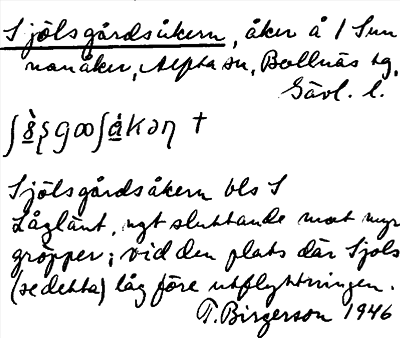 Sjölsgårdsåkern, åker å / Sun
nanåker, Alfta sn, Bollnäs tg,
Gävl. l.
Sjölsgårdsåkern bls S
Låglänt, ngt sluttande mot myr
gropper; vid den plats där Sjols
(se detta) låg före utflyttningen.
T. Birgerson 1946